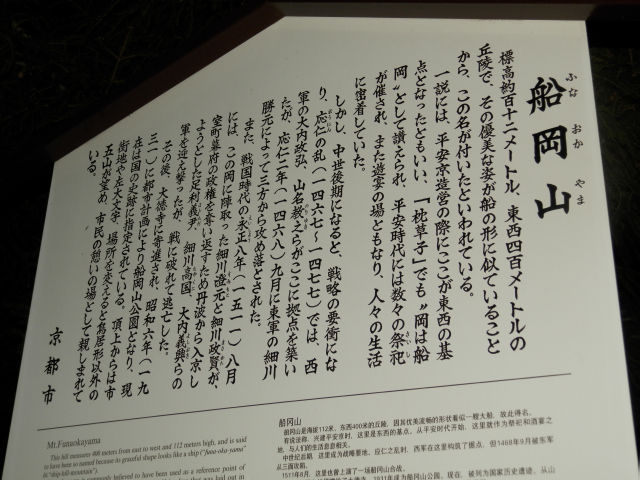 船岡山
ふな おか やま
標高約百十二メートル、東西四百メートルの
丘陵で、その優美な姿が船の形に似ていること
から、この名が付いたといわれている。
一説には、平安京造営の際にここが東西の基
点となったともいい、『枕草子』でも〝岡は船
岡〟として讃えられ、平安時代には数々の祭祀
が催され、また遊宴の場ともなり、人々の生活
に密着していた。
しかし、中世後期になると、戦略の要衝にな
り、応仁の乱(一四六七～一四七七)では、西
軍の大内政弘、山名教之らがここに拠点を築い
たが、応仁二年(一四六八)九月に東軍の細川
勝元によって三方から攻め落とされた。
また、戦国時代の永正八年(一五一一)八月
には、この岡に陣取った細川澄元と細川政賢が、
室町幕府の政権を奪い返すため丹波から入京し
ようとした足利義尹、細川高国、大内義興らの
軍を迎え撃ったが、戦に破れて逃亡した。
その後、大徳寺に寄進され、昭和六年(一九
三一)に都市計画により船岡山公園となり、現
在は国の史跡に指定されている。頂上からは市
街地や左大文字、場所を変えると鳥居形以外の
五山が望め、市民の憩いの場として親しまれて
いる。
京都市
Mt.Funaokayama
This hill measures 400 meters from east to west and 112 meters high, and is said
to have been so named because its graceful shape looks like a ship ("funa-oka-yama"
is "ship-hill-mountain").
commonly believed to have been used as a reference point of
船冈山
船冈山是海拔112米、东西400米的丘陵，因其优美流畅的形状看似一艘大船，故此得名。
有说法称，兴建平安京时，这里是东西的基点。从平安时代开始，这里就作为祭祀和酒宴之
地，与人们的生活息息相关。
中世纪后期，这里成为战略要地，应仁之乱时，西军在这里构筑了据点，但1468年9月被东军
从三面攻陷。
1511年8月，这里也曾上演了一场船冈山合战。